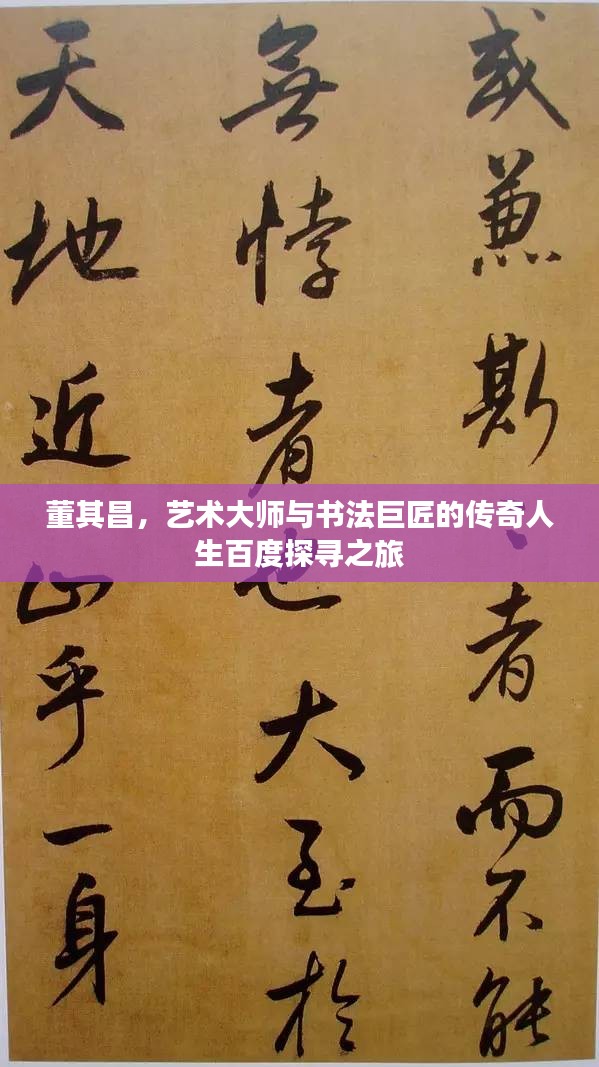 或兼斯者而不能
無悖者也大至於
天地近止乎一身
董其昌，艺术大师与书法巨匠的传奇人
生百度探寻之旅